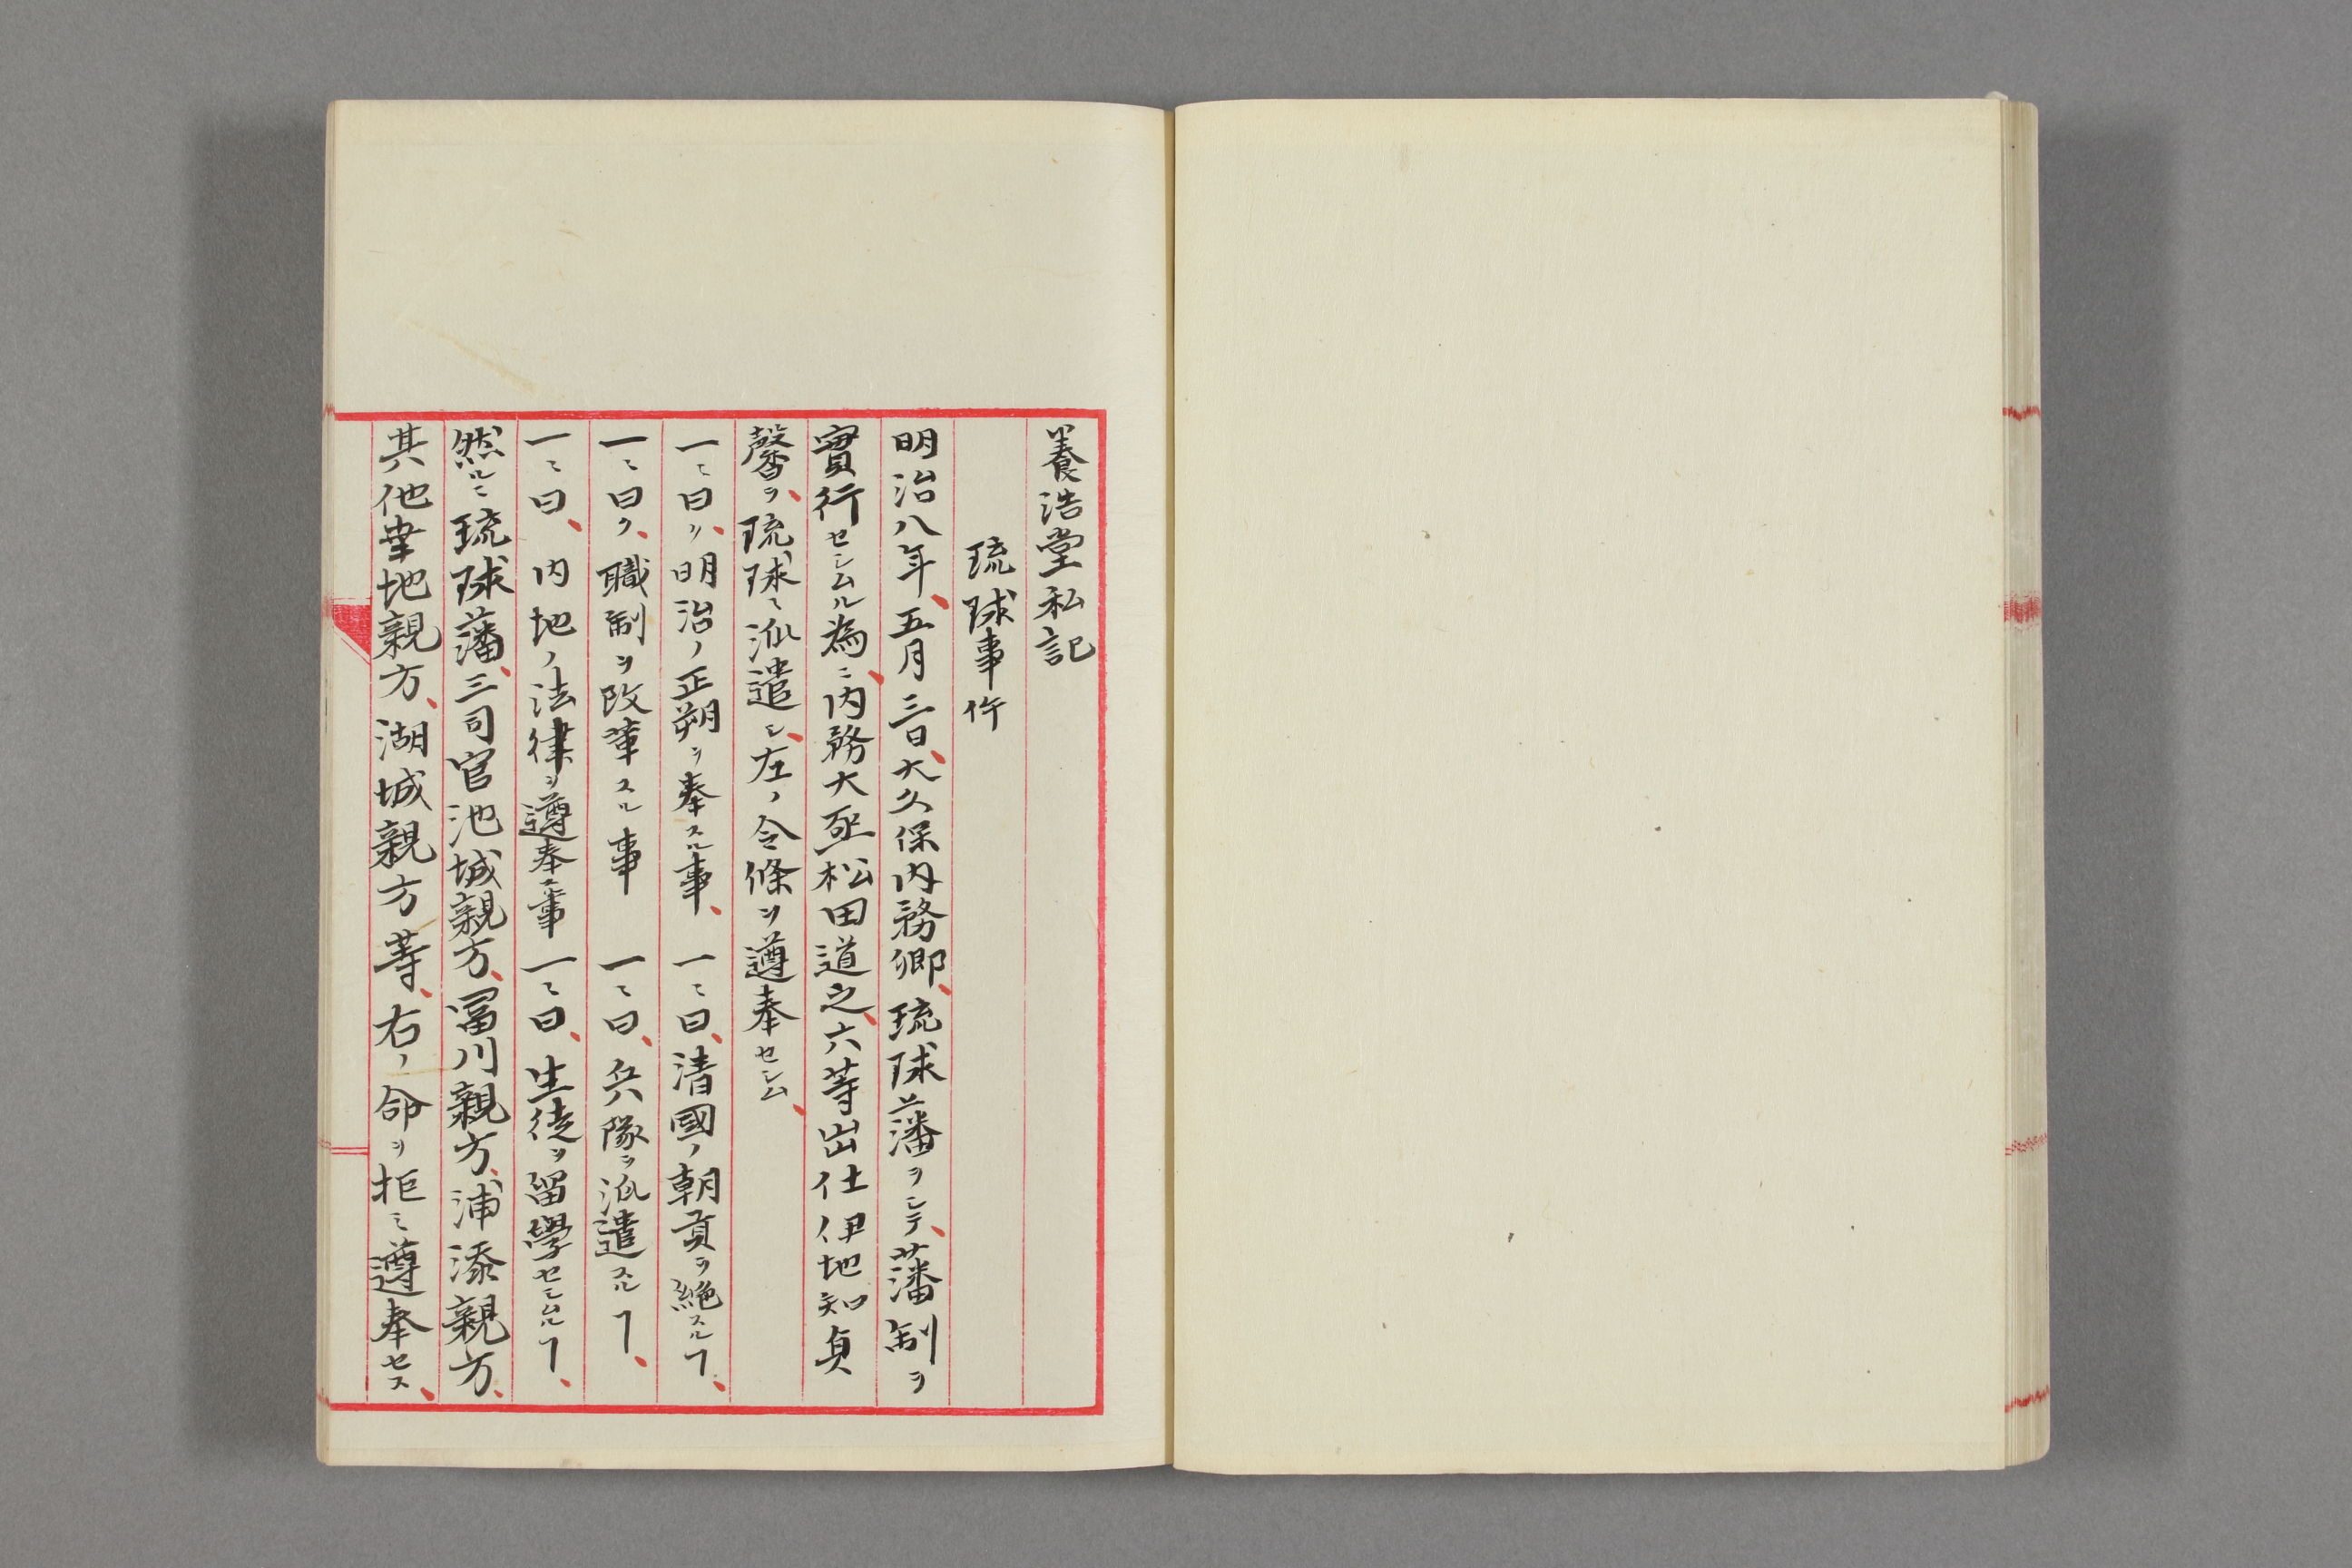 養浩堂私記
琉球事件
明治八年、五月三日、大久保内務卿、琉球藩ヲシテ、藩制ヲ
實行セシムル為ニ、内務大丞松田道之、六等出仕伊地知貞
馨ヲ、琉球ヘ派遣シ、左ノ令條ヲ遵奉セシム、
一ニ曰ク、明治ノ正朔ヲ奉スル事、一ニ曰、清國ノ朝貢ヲ絶スルヿ、
一ニ曰ク、職制ヲ改革スル事 一ニ曰、兵隊ヲ派遣スルヿ、
一ニ曰、内地ノ法律ヲ遵奉スル事 一ニ曰、生徒ヲ留學セシムルヿ、
然ルニ琉球藩、三司官池城親方、冨川親方、浦添親方、
其他幸地親方、湖城親方等、右ノ命ヲ拒ミ遵奉セス、